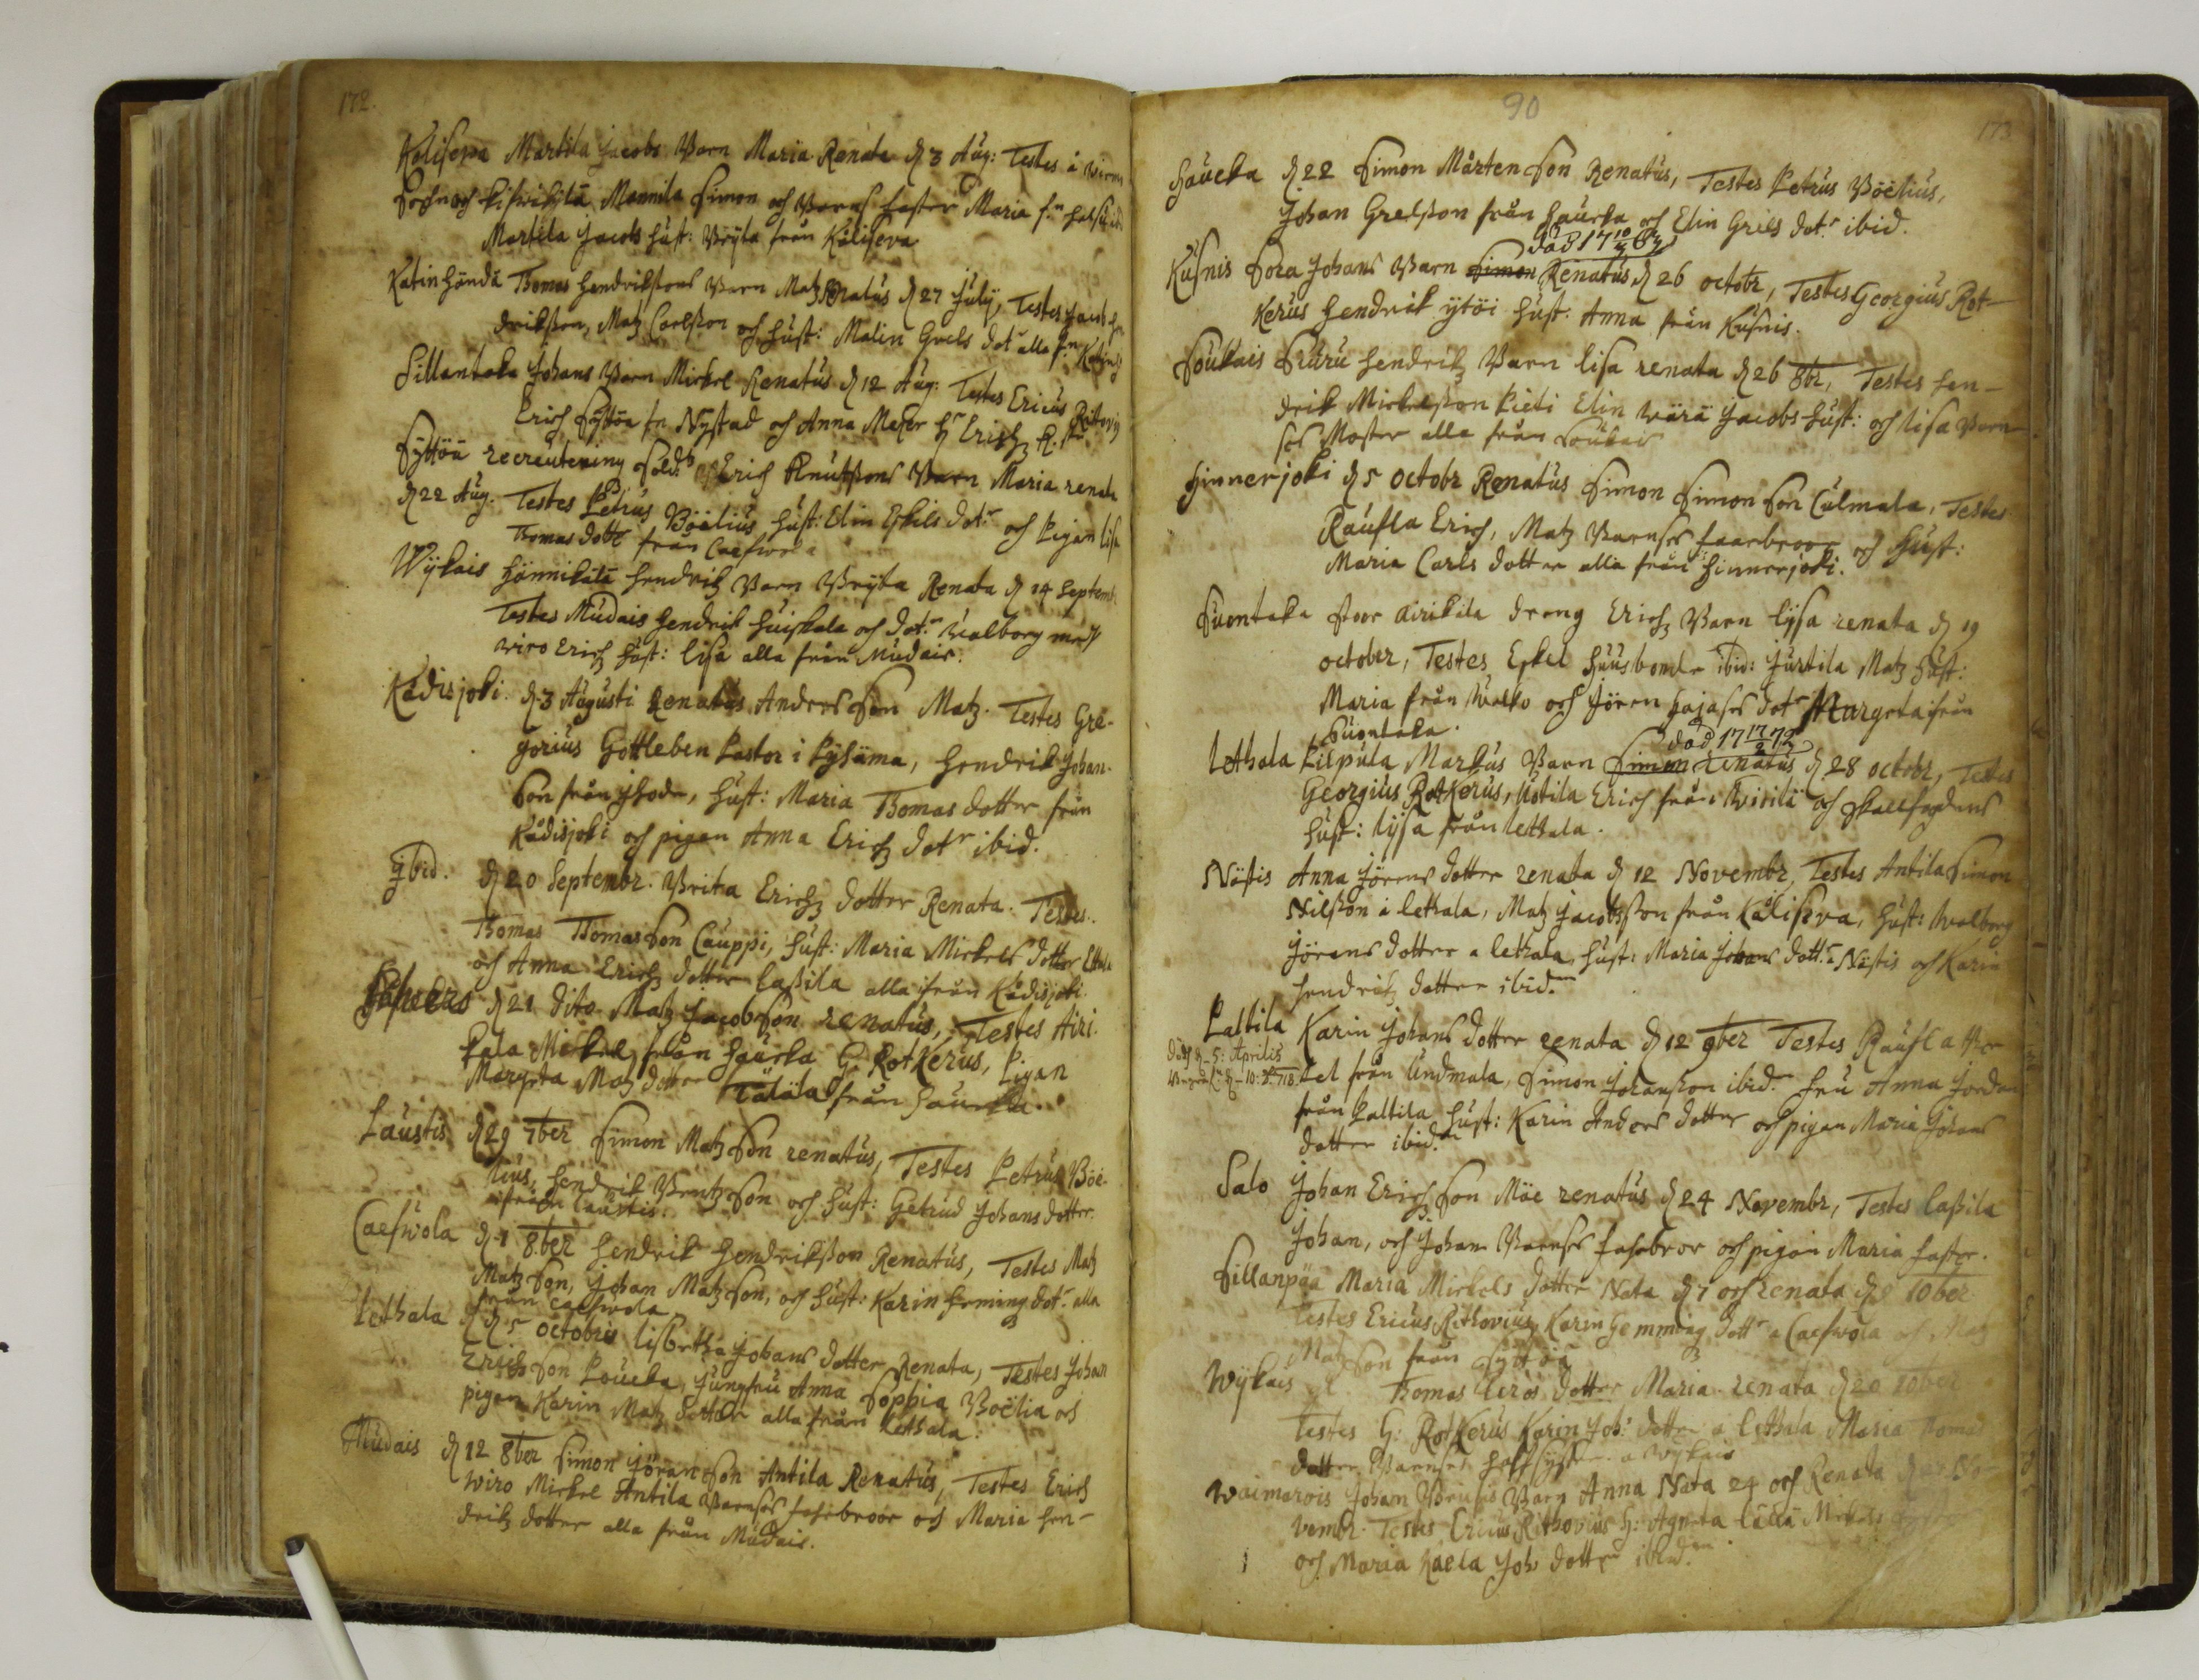 172.
Kalisepa Martila Jacobs Barn Maria Renata d 3 Aug: Testes à
Sochn och Mannila Simon och Barns faster Maria
Martila Jacobs hust: Bryta från Kåliseva
Katinhändä Thomas Hendrikssons Barn Matz Renatus d 27 July, Testes Jacob Hen
driksson, Matz Carlsson och hust: Malin Grels dot alla
Sillantaka Johans Barn Mickel Renatus d 12 Aug: Testes Ericus Ritovig
Erich Syttöä fr Nystad och Anna Erichz
Syttöä recreutering Sold: Erich Knutssons Barn Maria renata
d 22 Aug. Testes Petrus Böëlius, hust: Elin Eskils dotr och Pigan Lisa
Thomas dottr från Caeswola
Wykais Hännikälä Hendrikz Barn Bryta Renata d 14 Septemb
Testes Mudais Hendrik Huiskala och dotr Walborg
wiro Erichz hust: Lisa alla från Mudais.
Kådisjoki. d 3 Augusti Renatus Anders Son Matz. Testes Gre-
gorius Gottleben Pastor i Pyhäma, Hendrik Johan-
Son från Ihode, hust: Maria Thomas dotter från
Kådisjoki och pigan Anna Erichz dotr ibid.
Ibid. d 20 Septembr. Brita Erichz dotter Renata. Testes.
Thomas Thomas Son Cauppi, hust: Maria Mickels dotter
och Anna Erichz dotter Lassila alla från Kådisjoki.
d 21 dito Matz Jacobson renatus, Testes Airi
kala Mickel, från Haucka G: RotKerus, Pigan
Margeta Matz dotter Tälälä från Haucka.
Laustis d 29 7ber Simon Matz Son renatus, Testes Petrus Böë-
lius, Hendrik Bentz Son och hust: Getrud Johans dotter.
från Laustis.
Caeswola d 1 8.ber Hendrik Hendriksson Renatus, Testes Matz
Matz Son, Johan Matz Son, och hust: Karin Heming dotr. alla
från Caeswola
Lethala d 5 octobris Lisbetha Johans dotter Renata, Testes Johan
Erichson Loucka, Jungfru Anna Sophia Boëlia och
pigan Karin Matz dotter alla från Lethala.
Mudais d 12 8ber Simon Jöran Son Antila Renatus, Testes Erich
Wiro Mickel Antila Barnses farbroor och Maria Hen-
drikz dotter alla från Mudais.
90
173
Haucka d 22 Simon Mårten Son Renatus, Testes Petrus Böëlius,
Johan Grelsson från Haucka och Elin Grels dotr. ibid.
död 17
Kusnis Sora Johans Barn Simon Renatus d 26 octobr, Testes Georgius Rot-
Kerus Hendrik ytöi hust: Anna från Kusnis.
Soukais Sturu Hendrikz Barn Lisa renata d 26 8br, Testes Hen-
drik Mickelsson Pieti Elin Wärä Jacobs hust: och Lisa Barn-
ses Moster alla från Soukais
Hinnerjoki d 5 octobr Renatus Simon Simon Son Culmala, Testes
Raufla Erich, Matz Barnses faarbroor och Hust:
Maria Carls dotter alla från Hinnerjoki.
Suontaka Stoor Kirikila dreng Erichz Barn Lysa renata d 19
october, Testes Eskel huusbonde ibid: Jurtila Matz hust:
Maria från Walko och Jören Hajases dotr Margeta från
Suontaka.
död 17
Lethala Kilpula Markus Barn Simon renatus d 28 octobr, Testes
Georgius RotKerus, Ustila Erich från Wirilä och
hust: Lysa från Lethala.
Nästis Anna Jörens dotter renata d 12 Novembr, Testes Antila Simon
Nilsson à Lethala, Matz Jacobsson från Kåliseva, hust: Walborg
Jörens dotter a Lethala, hust: Maria Johans dottr. a Nästis och Karin
Hendrikz dotter ibid.
Laltila Karin Johans dotter renata d 12 9ber Testes Raufla
död d 5: Aprilis
från Undmala, Simon Johansson ibid. Fru Anna Jordan
från Laltila hust: Karin Anders dotter och pigan Maria Johans
dotter ibid.
Salo Johan Erichz Son Mäe renatus d 24 Novembr, Testes Lassila
Johan, och Johan Barnses farbror och pigan Maria faster.
Sillanpää Maria Mickels dotter Nata d 7 och renata d 8 10ber
Testes Ericus Rithovius, Karin Hemming dottr a Caeswola och Matz
Matz Son från Syttöä
Wykais Thomas dotter Maria renata d 20 10ber
Testes G: RotKerus Karin Joh: dotter a Lethala Maria Thomas
dotter Barnses a Wykais
Waimarois Johan Barn Anna Nata 24 och Renata d No-
vembr. Testes Ericus Rithovius H: Agneta Lällä Mickels
och Maria Kaela Joh: dotter ibid.